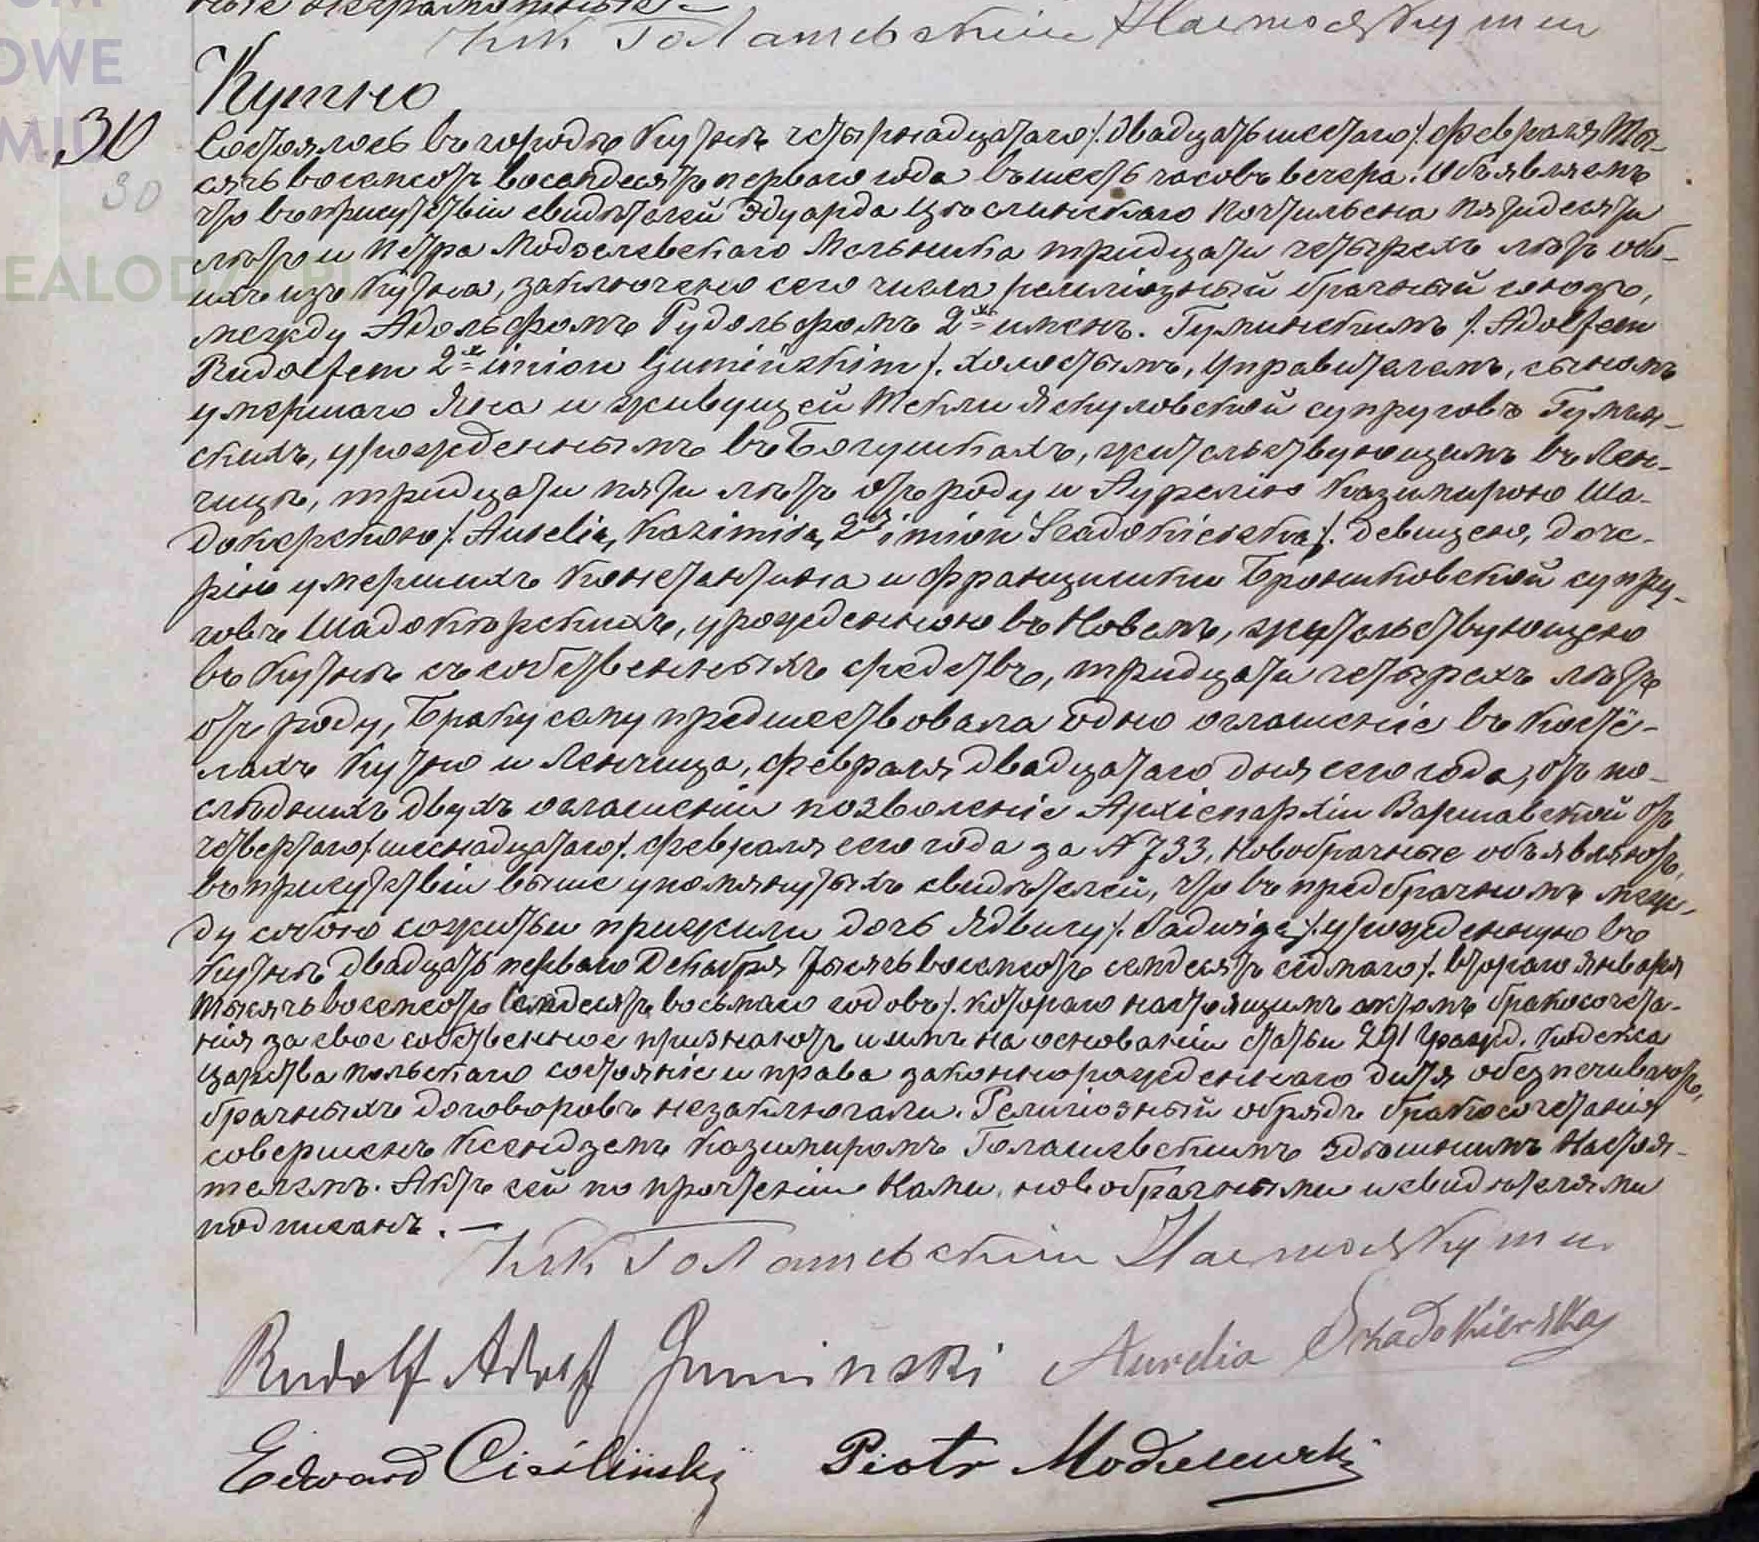 Кс К Голашевскiй Настоя Кутн
Кутно
30
30
Состоялось въ городѣ Кутнѣ четырнадцатаго /. двадцать шестаго /. февраля Ты-
сячъ восемсотъ восемдесятъ перваго года въ шесть часовъ вечера. Объявляемъ
что въ присутствіи свидѣтелей Эдуарда Цѣслинскаго Почтильона пятидесяти
лѣтъ и Петра Модзелевскаго Мельника тридцати четырехъ лѣтъ обо-
ихъ изъ Кутна, заключено сего числа религіозный брачный союзъ,
между Адольфомъ Рудольфомъ 2хъ именъ. Гуминскимъ /. Adolfem
Rudolfem 2x imion Gumińskim /. холостымъ, Управителемъ, сыномъ
умершаго Яна и живущей Текли Якуловской супруговъ Гумин-
скихъ, урожденнымъ въ Богушкахъ, жительствующимъ въ Лен-
чицѣ, тридцати пяти лѣтъ отъ роду и Аурелію Казимирою Ша-
докерскою /. Aurelią, Kazimirą, 2ga imion Szadokierską /. девицею, доче-
рію умершихъ Константина и Францишки Брониковской супру-
говъ Шадокерскихъ, урожденною въ Новемъ, жительствующею
въ Кутнѣ съ собственныхъ средствъ, тридцати четырехъ лѣтъ
отъ роду, Браку сему предшествовала одно оглашеніе въ Костё-
лахъ Кутно и Ленчица, февраля двадцатаго дня сего года, отъ по-
слѣднихъ двухъ оглашеній позволеніе Архіепархіи Варшавской отъ
четвертаго /. шеснадцатаго /. февраля сего года за N 733, Новобрачные объявляютъ,
въ присутствіи выше упомянутыхъ свидѣтелей, что въ предбрачномъ меж-
ду собою сожитьи прижили дочь Ядвигу /. Jadwigę /. урожденную въ
Кутнѣ двадцать перваго Декабря тысячъ восемсотъ семдесятъ седмаго /. втораго января
тысячъ восемсотъ семдесятъ восьмаго годовъ /. котораго настоящимъ актомъ бракосочета-
нія за свое собственное признаютъ и имъ на основаніи статьи 291 Гражд. Кодекса
Царства Польскаго состояніе и права законнорожденнаго дитя обезпечиваютъ,
брачныхъ договоровъ незаключали. Религіозный обрядъ бракосочетания
совершенъ Ксендземъ Казимиромъ Голашевскимъ здѣшнимъ Настоя-
телемъ. Актъ сей по прочтеніи Нами, новобрачными и свидѣтелями
подписанъ. —
Кс К Голашевскiй Настоя Кутн
Rudolf Adolf Gumiński Aurelia Szadokierska
Edward Cieśliński Piotr Modzelewski